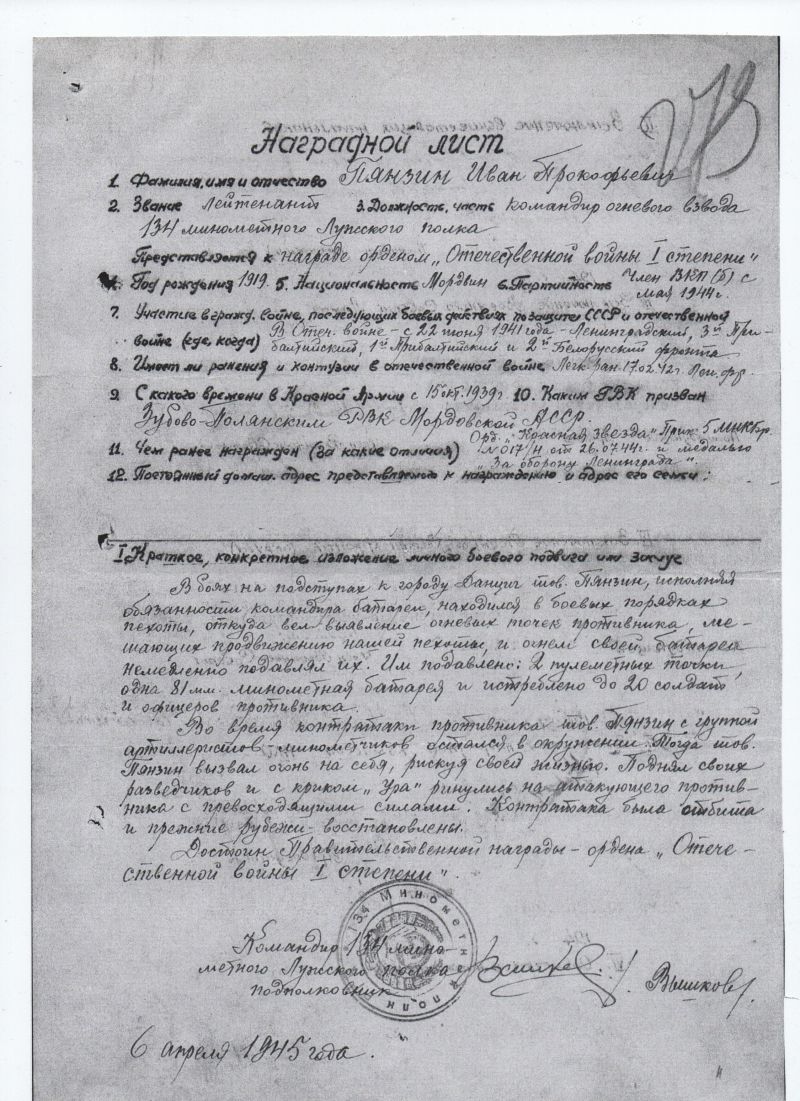 278
Наградной лист
1. Фамилия, имя и отчество Пянзин Иван Прокофьевич
2. Звание Лейтенант 3. Должность, часть командир огневого взвода
134 минометного Лужского полка
Представляется к награде орденом „Отечественной войны I степени"
4. Год рождения 1919. 5. Национальность Мордвин 6. Партийность Член ВКП(б) с
мая 1944г.
7. Участие в гражд. войне, последующих боевых действиях по защите СССР и отечественной
войне (где, когда) В Отеч. войне - с 22 июня 1941 года - Ленинградский, 3й При-
балтийский, 1й Прибалтийский и 2й Белорусский фронта
8. Имеет ли ранения и контузии в отечественной войне Легк. ран. 17.02.42г. Лен. фр.
9. С какого времени в Красной Армии с 15 окт. 1939г. 10. Каким РВК призван
Зубово-Полянским РВК Мордовской АССР.
Орд. „Красная звезда" Приж. 5 МНКбр.
11. Чем ранее награжден (за какие отличия) №017/н от 26.07.44г. и медалью
„За оборону Ленинграда".
12. Постоянный домаш. адрес представляемого к награждению и адрес его семьи:
I. Краткое, конкретное изложение личного боевого подвига или заслуг
В боях на подступах к городу Данциг тов. Пянзин, исполняя
обязанности командира батареи, находился в боевых порядках
пехоты, откуда вел выявление огневых точек противника, ме-
шающих продвижению нашей пехоты, и огнем своей батареи
немедленно подавлял их. Им подавлено: 2 пулеметных точки,
одна 81 мм. минометная батарея и истреблено до 20 солдат
и офицеров противника.
Во время контратаки противника тов. Пянзин с группой
артиллеристов-минометчиков остался в окружении. Тогда тов.
Пянзин вызвал огонь на себя, рискуя своей жизнью. Поднял своих
разведчиков и с криком „Ура" ринулись на атакующего против-
ника с превосходящими силами. Контратака была отбита
и прежние рубежи - восстановлены.
Достоин Правительственной награды - ордена „Отече-
ственной войны I степени".
134 Минометный полк
Командир 134 мино-
метного Лужского полка
подполковник Вышков
6 апреля 1945 года.